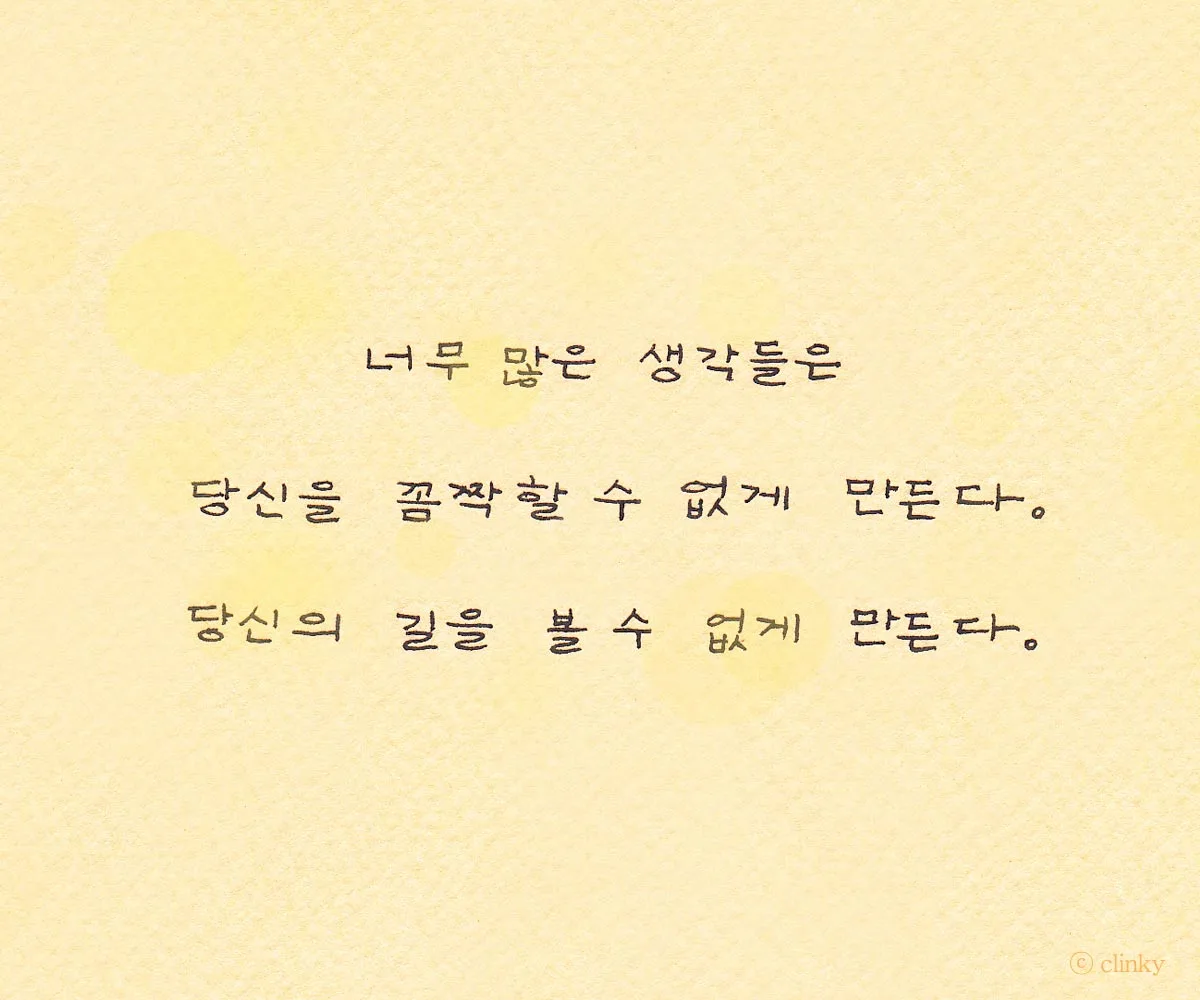 너무 많은 생각들은
당신을 꼼짝할 수 없게 만든다.
당신의 길을 볼 수 없게 만든다.
ⓒ clinky